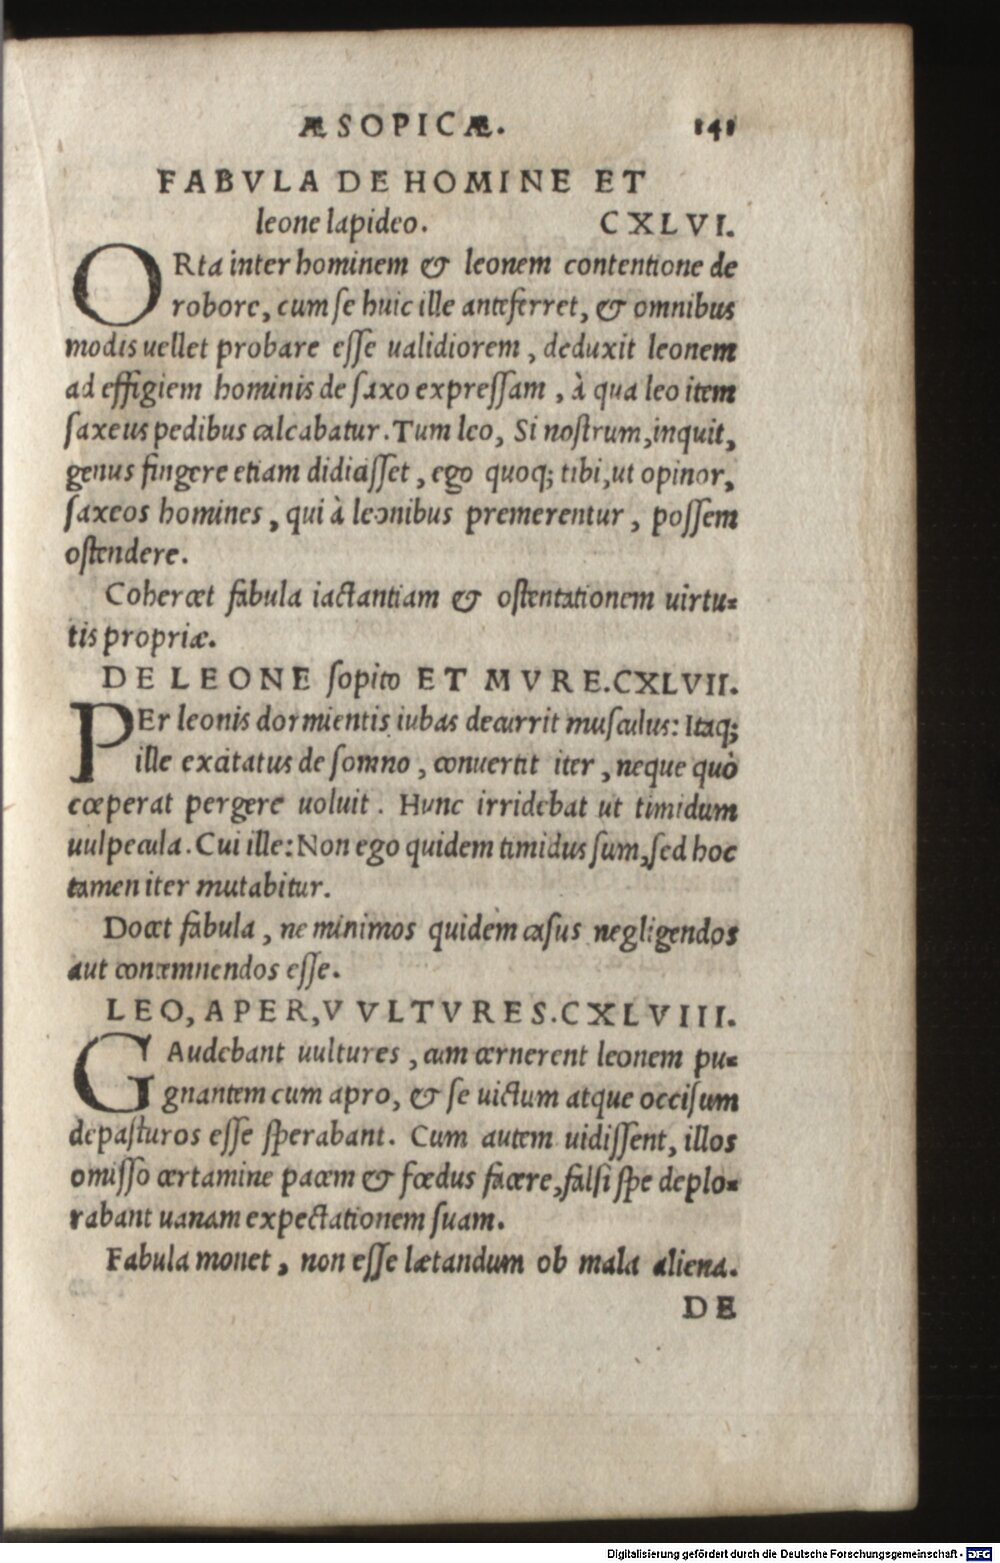 ÆSOPICÆ. 141
FABVLA DE HOMINE ET
leone lapideo. CXLVI.
ORta inter hominem & leonem contentione de
robore, cum se huic ille anteferret, & omnibus
modis uellet probare esse ualidiorem, deduxit leonem
ad effigiem hominis de saxo expressam, à qua leo item
saxeus pedibus calcabatur. Tum leo, Si nostrum, inquit,
genus fingere etiam didicisset, ego quoq; tibi, ut opinor,
saxeos homines, qui à leonibus premerentur, possem
ostendere.
Cohercet fabula iactantiam & ostentationem uirtu=
tis propriæ.
DE LEONE sopito ET MVRE. CXLVII.
PEr leonis dormientis iubas decurrit musculus: Itaq;
ille excitatus de somno, conuertit iter, neque quò
cœperat pergere uoluit. Hunc irridebat ut timidum
uulpecula. Cui ille: Non ego quidem timidus sum, sed hoc
tamen iter mutabitur.
Docet fabula, ne minimos quidem casus negligendos
aut contemnendos esse.
LEO, APER, VVLTVRES. CXLVIII.
GAudebant uultures, cum cernerent leonem pu=
gnantem cum apro, & se uictum atque occisum
depasturos esse sperabant. Cum autem uidissent, illos
omisso certamine pacem & fœdus facere, falsi spe deplo=
rabant uanam expectationem suam.
Fabula monet, non esse lætandum ob mala aliena.
DE
Digitalisierung gefördert durch die Deutsche Forschungsgemeinschaft - DFG